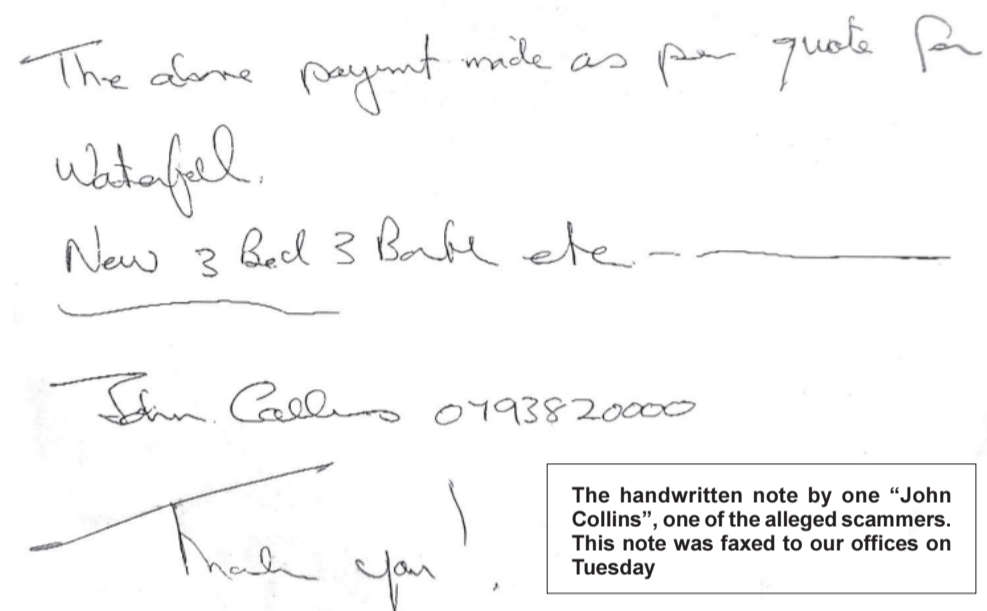 The above payment made as per quote for
Waterfall.
New 3 Bed 3 Bath etc. -
John. Collins 0793820000
Thank you!
The handwritten note by one “John
Collins”, one of the alleged scammers.
This note was faxed to our offices on
Tuesday